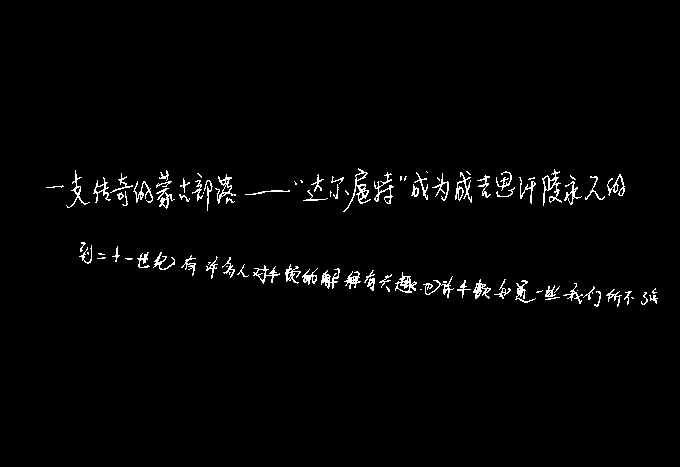 一支传奇的蒙古部落——“达尔扈特”成为成吉思汗陵永久的
到二十一世纪有许多人对手模的解释有兴趣也许手模知道一些我们所不了